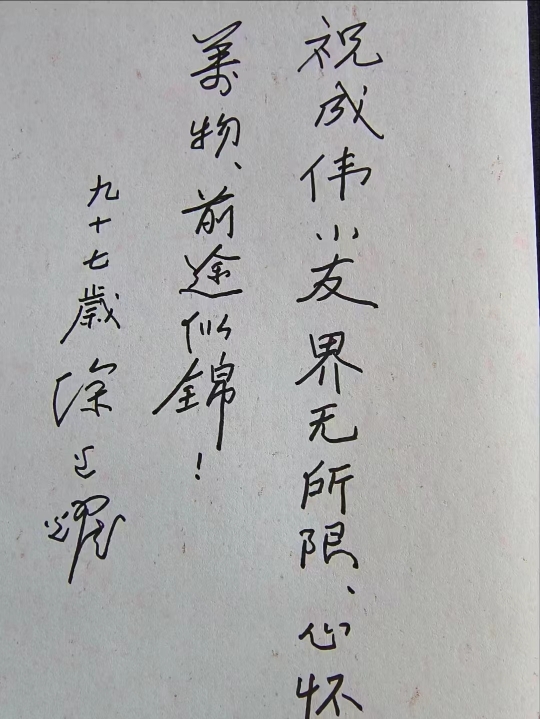 祝成伟小友界无所限、心怀
萬物、前途似錦！
九十七歲